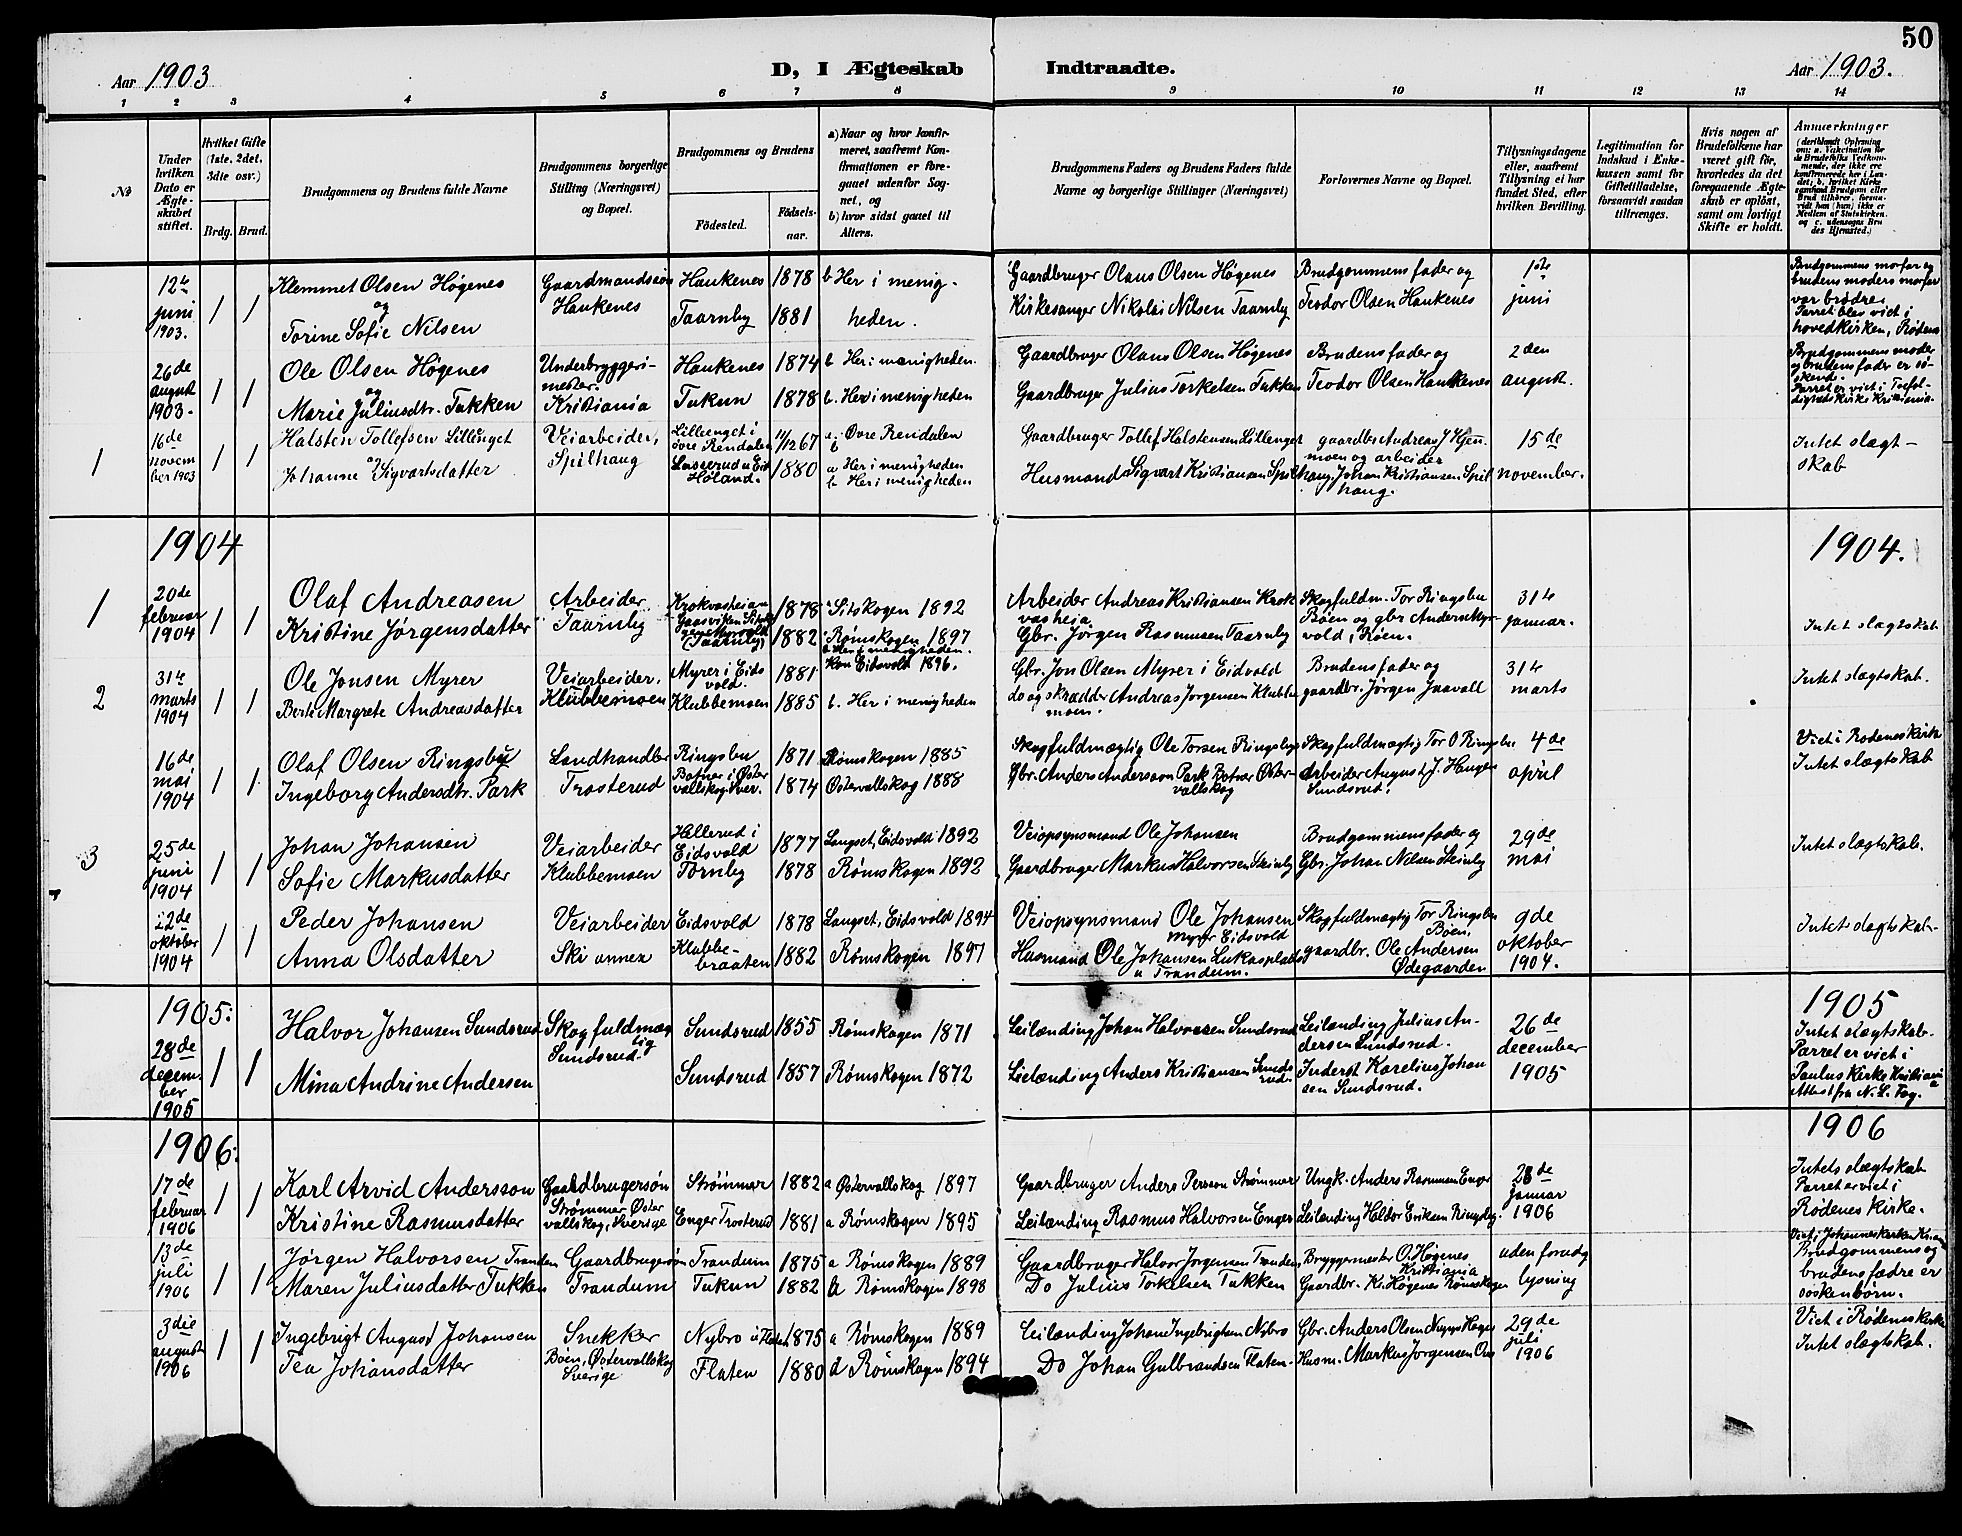 50
Aar 1903 D, I Ægteskab Indtraadte. Aar 1903.
1 2 3 4 5 6 7 8 9 10 11 12 13 14
№
Under hvilken Dato er Ægteskabet stiftet.
Hvilket Gifte (1ste, 2det, 3die osv.)
Brdg. Brud.
Brudgommens og Brudens fulde Navne
Brudgommens borgerlige Stilling (Næringsvei) og Bopæl.
Brudgommens og Brudens
Fødested. Fødselsaar.
a) Naar og hvor konfirmeret, saafremt Konfirmationen er foregaaet udenfor Sognet, og
b) hvor sidst gaaet til Alters.
Brudgommens Faders og Brudens Faders fulde Navne og borgerlige Stillinger (Næringsvei)
Forlovernes Navne og Bopæl.
Tillysningsdagene eller, saafremt Tillysning ei har fundet Sted, efter hvilken Bevilling.
Legitimation for Indskud i Enkekassen samt for Giftetilladelse, forsaavidt saadan tiltrænges.
Hvis nogen af Brudefolkene har været gift før, hvorledes da det foregaaende Ægteskab er opløst, samt om lovligt Skifte er holdt.
Anmærkninger
(deriblandt Oplysning om: a. Vakcination for de Brudefolks Vedkommende, der ikke ere konfirmerede her i Landet; b. hvilket Kirkesamfund Brudgom eller Brud tilhører, forsaavidt han (hun) ikke er Medlem af Statskirken, og c. udensogns Brudes Hjemsted.)
12te juni 1903. 1 1 Klemmet Olsen Høgenes og Gaardmandssøn Haukenes Haukenes 1878 b Her i menigheden. Gaardbruger Olaus Olsen Høgenes Brudgommens fader og 1ste juni
Torine Sofie Nilsen Taarnby 1881 Kirkesanger Nikolai Nilsen Taarnby Teodor Olsen Haukenes
Brudgommens morfar og brudens moders morfar var brødre. Parret blev viet i hovedkirken, Rødenes
26de august 1903. 1 1 Ole Olsen Høgenes og Underbryggerimester. Kristiania Haukenes 1874 b Her i menigheden. Gaardbruger Olaus Olsen Høgenes Brudens fader og 2den august.
Marie Juliusdtr. Tukken Tukun 1878 b. Her i menigheden Gaardbruger Julius Torkelsen Tukken Teodor Olsen Haukenes
Brudgommens moder og brudens fader er søskend. Parret er viet i Trefoldighets kirke Kristiania
1 16de november 1903 Halsten Tollefsen Lillenget og Veiarbeider, Spilhaug Lillenget i øvre Rendalen 11/12 67 a. b Øvre Rendalen Gaardbruger Tollef Halstensen Lillenget gaardbr Andreas J Hjenmoen og arbeider 15de november.
Johanne Sigvartsdatter Lasserud i Eid Høland. 1880 a Her i menigheden b Her i menigheden Husmand Sigvart Kristiansen Spilhaug. Johan Kristiansen Spilhaug.
Intet slægtskab
1904 1904.
1 20de februar 1904 1 1 Olaf Andreasen Arbeider Taarnby 1878 a Sitskogen 1892 Arbeider Andreas Kristiansen Krokvasheia Skogfuldm. Tor Ringsbu 31te januar.
Kristine Jørgensdatter (Taarnby) 1882 Rømskogen 1897 b Her i menigheden. Gbr. Jørgen Rasmussen Taarnby Bøen og gbr Anders Myrvold, Bøen. Intet slægtskab
2 31te marts 1904 1 1 Ole Jonsen Myrer Veiarbeider. Klubbemoen Myrer i Eidsvold. 1881 Kon Eidsvold 1896. Gbr. Jon Olsen Myrer i Eidvold Brudens fader og 31te marts Intet slægtskab.
Berte Margrete Andreasdatter Klubbemoen 1885 b. Her i menigheden do og skrædder Andreas Jørgensen Klubbemoen. gaardbr. Jørgen Jaavall
16de mai 1904 1 1 Olaf Olsen Ringsby Landhandler Trosterud Ringsbu 1871 Rømskogen 1885 Skogfuldmægtig Ole Torsen Ringsby Skogfuldmægtig Tor O Ringsbu 4de april Viet i Rødenes kirke Intet slægtskab
Ingeborg Andersdtr. Park Botnar i Østervallskog Sver. 1874 Østervallskog 1888 Gbr. Anders Andersson Park Botnar Østervallskog Arbeider August J. Haugen Sundsrud.
3 25de juni 1904 1 1 Johan Johansen Veiarbeider Klubbemoen Hallerud i Eidsvold 1877 Langset, Eidsvold 1892 Veiopsynsmand Ole Johansen Brudgommens fader og 29de mai Intet slægtskab.
Sofie Markusdatter Tornby 1878 Rømskogen 1892 Gaardbruger Markus Halvorsen Steinby Gbr. Johan Nilsen Steinby
22de oktober 1904 1 1 Peder Johansen Veiarbeider Ski annex Eidsvold 1878 Langset, Eidsvold 1894 Veiopsynsmand Ole Johansen Myrer Eidsvold Skogfuldmægtig Tor Ringsbu Bøen, 9de oktober 1904. Intet slægtskab
Anna Olsdatter Klubbebraaten 1882 Rømskogen 1897 Husmand Ole Johansen Lukasplads u Trandum. gaardbr. Ole Andersen Ødegaarden
1905: 1905
28de december 1905 1 1 Halvor Johansen Sundsrud Skogfuldmægtig Sundsrud. Sundsrud 1855 Rømskogen 1871 Leilænding Johan Halvorsen Sundsrud Leilænding Julius Andersen Sundsrud. 26de december 1905
Mina Andrine Andersen Sundsrud 1857 Rømskogen 1872 Leilænding Anders Kristiansen Sundsrud. Inderst Karelius Johansen Sundsrud.
Intet slægtskab. Parret er viet i Paulus Kirke Kristiania Attest fra N. L. Fog.
1906: 1906
17de februar 1906 1 1 Karl Arvid Andersson Gaardbrugersøn Strømmer Østervallskog, Sverige Strømmer 1882 a Østervallskog 1897 Gaardbruger Anders Persson Strømmer Ungk. Anders Rasmussen Enger 28de januar 1906
Kristine Rasmusdatter Enger Trosterud 1881 a Rømskogen 1895 Leilænding Rasmus Halvorsen Enger Leilænding Haldor Eriksen Ringsby.
Intet slægtskab Parret er viet i Rødenes Kirke.
13de juli 1906 1 1 Jørgen Halvorsen Trandem Gaardbrugersøn Trandum Trandum 1875 a Rømskogen 1889 Gaardbruger Halvor Jørgensen Trandem Bryggermester O. Høgenes Kristiania uden forudg lysning
Maren Juliusdatter Tukken Tukun 1882 a Rømskogen 1898 Do Julius Torkelsen Tukken Gaardbr. Kr. Høgenes Rømskogen
Viet i Johanneskirken Kr.ania Brudgommens og brudens fædre er søskenbørn.
3die august 1906 1 1 Ingebrigt August Johansen Snekker Bøen, Østervallskog Sverige Nybro u Flaten 1875 a Rømskogen 1889 Leilænding Johan Ingebrigtsen Nybro Gbr. Anders Olsen 29de juli 1906
Tea Johansdatter Flaten 1880 d Rømskogen 1894 Do Johan Gulbrandsen Flaten. Husm. Markus Jørgensen
Viet i Rødenes Kirke Intet slægtskab.